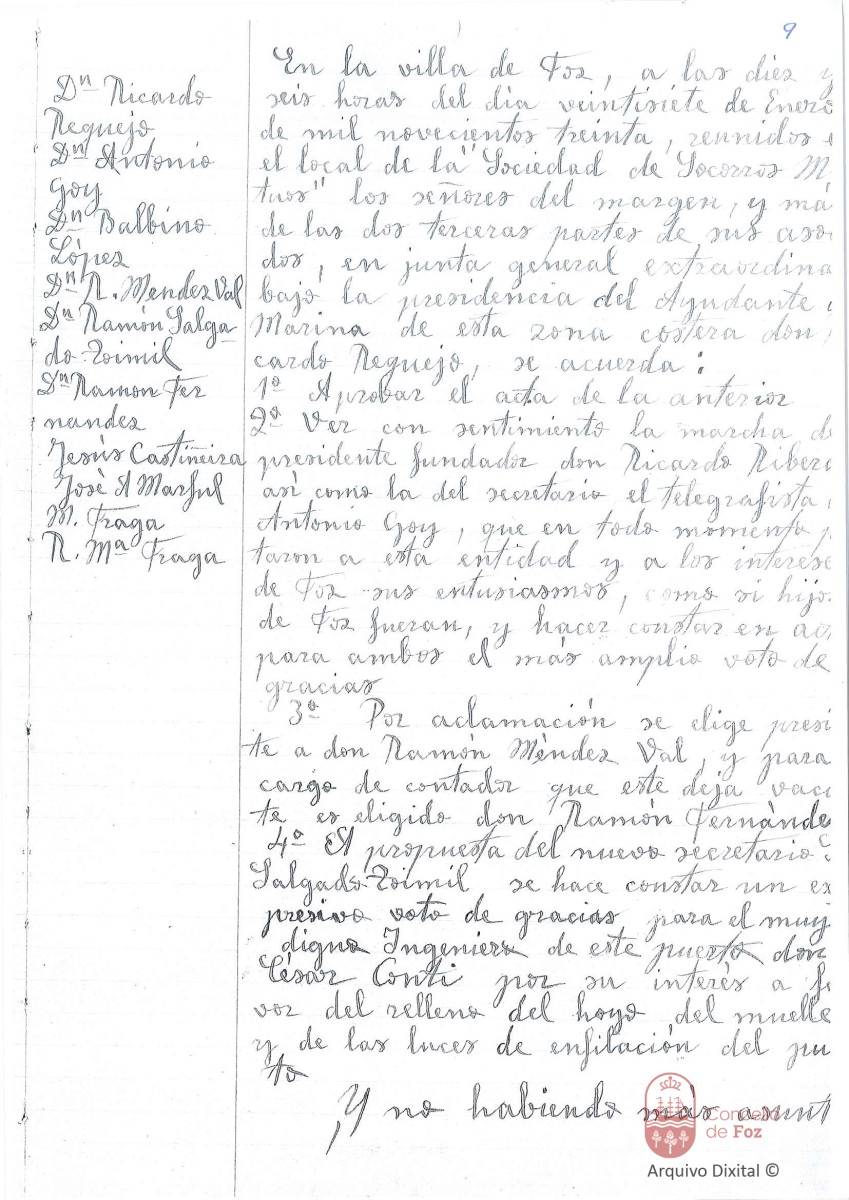 9
Dn Ricardo
Requejo
Dn Antonio
Goy
Dn Balbino
López
Dn R. Mendez Val
Dn Ramón Salga-
do Zoimil
Dn Ramon Fer
nandez
Jesús Castiñeira
José A Marful
M. Fraga
R. Mª Fraga
En la villa de Foz, a las diez y
seis horas del dia veintisiete de Enero
de mil novecientos treinta, reunidos e
el local de la "Sociedad de Socorros M
tuos" los señores del margen, y má
de las dos terceras partes de sus aso
dos, en junta general extraordina
bajo la presidencia del Ayudante
Marina de esta zona costera don
cardo Requejo, se acuerda:
1º Aprobar el acta de la anterior
2º Ver con sentimiento la marcha d
presidente fundador don Ricardo Ribero
así como la del secretario el telegrafista
Antonio Goy, que en todo momento p
taron a esta entidad y a los interese
de Foz sus entusiasmos, como si hijo
de Foz fueran, y hacer constar en ac
para ambos el más amplio voto de
gracias
3º Por aclamación se elige presi
te a don Ramón Méndez Val, y para
cargo de contador que este deja vaca
te es eligido don Ramón Fernánde
4º A propuesta del nuevo secretario
Salgado Zoimil se hace constar un ex
presivo voto de gracias para el muy
digno Ingeniero de este puerto don
César Conti por su interés a fa
vor del relleno del hoyo del muelle
y de las luces de enfilación del pu
to
Y no habiendo más asunt
Concello
de Foz
Arquivo Dixital ©